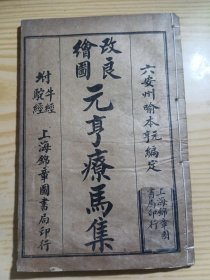 六安州喻本亨元編定
改良
繪圖
元亨療馬集
附牛經
駝經
上海錦章圖書局印行
上海錦章圖
書局印行